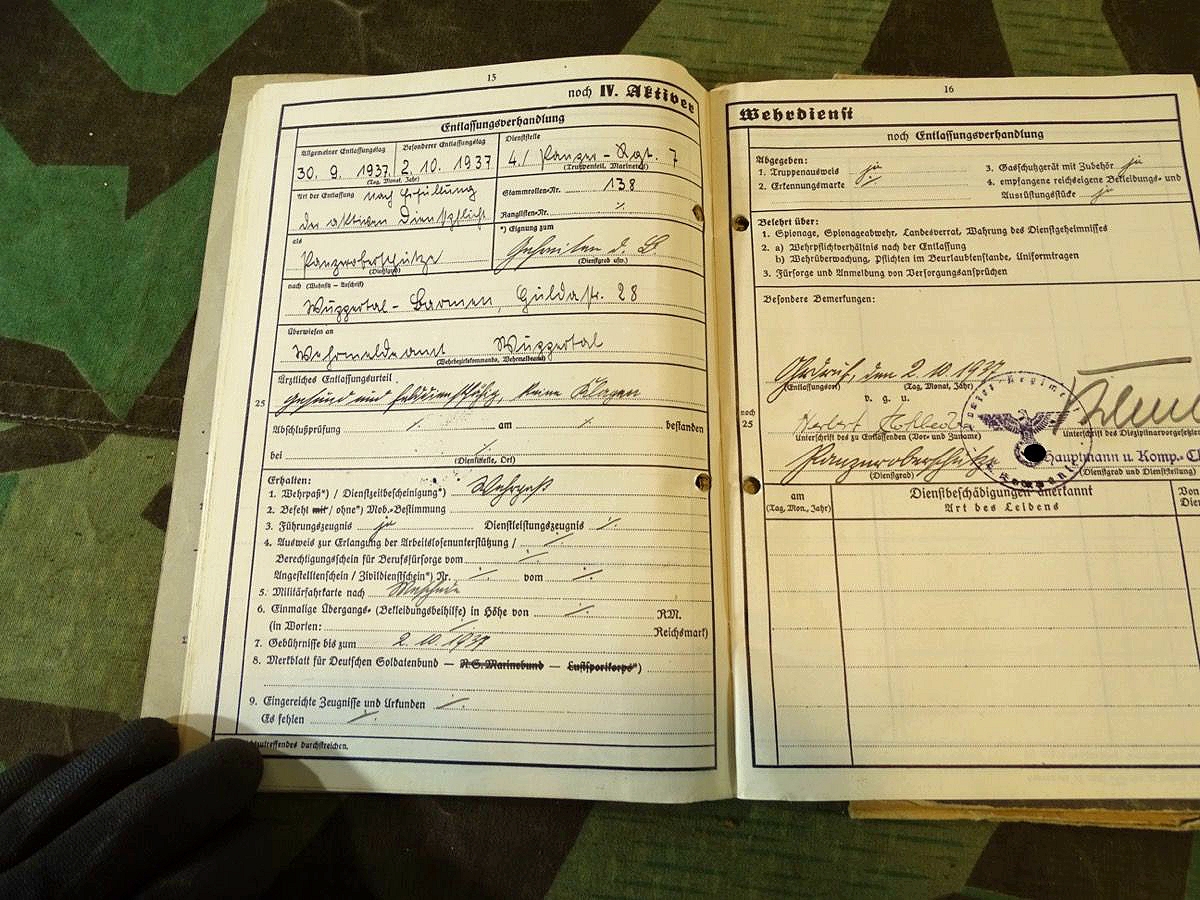 15
noch IV. Aktiver
Entlassungsverhandlung
Allgemeiner Entlassungstag
Besonderer Entlassungstag
Dienststelle
30. 9. 1937
2. 10. 1937
4./ Panzer-Rgt. 7
(Tag, Monat, Jahr)
(Truppenteil, Marineteil)
Art der Entlassung nach Erfüllung
der aktiven Dienstpflicht
Stammrollen-Nr. 138
Ranglisten-Nr. ⁒
als
*) Eignung zum
Panzeroberschütze
Gefreiten d. B.
(Dienstgrad)
(Dienstgrad usw.)
nach (Wohnsitz - Anschrift)
Wuppertal-Barmen, 28
überwiesen an
Wehrmeldeamt Wuppertal
(Wehrbezirkskommando, Wehrmeldeamt)
Ärztliches Entlassungsurteil
25
gesund und felddienstfähig, keine Klagen
Abschlußprüfung ⁒ am ⁒ bestanden
bei
(Dienststelle, Ort)
Erhalten:
1. Wehrpaß*) / Dienstzeitbescheinigung*) Wehrpaß
2. Befehl mit / ohne*) Mob.-Bestimmung
3. Führungszeugnis ja Dienstleistungszeugnis ⁒
4. Ausweis zur Erlangung der Arbeitslosenunterstützung / ⁒
Berechtigungsschein für Berufsfürsorge vom ⁒
Angestelltenschein / Zivildienstschein*) Nr. ⁒ vom ⁒
5. Militärfahrkarte nach
6. Einmalige Übergangs- (Bekleidungsbeihilfe) in Höhe von ⁒ RM.
(in Worten: ⁒ Reichsmark)
7. Gebührnisse bis zum 2. 10. 1937
8. Merkblatt für Deutschen Soldatenbund — N.S.Marinebund — Luftsportkorps*)
9. Eingereichte Zeugnisse und Urkunden ⁒
Es fehlen ⁒
durchstreichen.
16
Wehrdienst
noch Entlassungsverhandlung
Abgegeben:
1. Truppenausweis ja
2. Erkennungsmarke ⁒
3. Gasschutzgerät mit Zubehör ja
4. empfangene reichseigene Bekleidungs- und
Ausrüstungsstücke ja
Belehrt über:
1. Spionage, Spionageabwehr, Landesverrat, Wahrung des Dienstgeheimnisses
2. a) Wehrpflichtverhältnis nach der Entlassung
b) Wehrüberwachung, Pflichten im Beurlaubtenstande, Uniformtragen
3. Fürsorge und Anmeldung von Versorgungsansprüchen
Besondere Bemerkungen:
Ohrdruf, den 2. 10. 1937
(Entlassungsort) (Tag, Monat, Jahr)
v. g. u.
noch
25
Herbert
Unterschrift des zu Entlassenden (Vor- und Zuname)
Unterschrift des Disziplinarvorgesetzten
Panzeroberschütze
Hauptmann u. Komp.-Ch
(Dienstgrad)
(Dienstgrad und Dienststellung)
am
(Tag, Mon., Jahr)
Dienstbeschädigungen anerkannt
Art des Leidens
Von
Dien